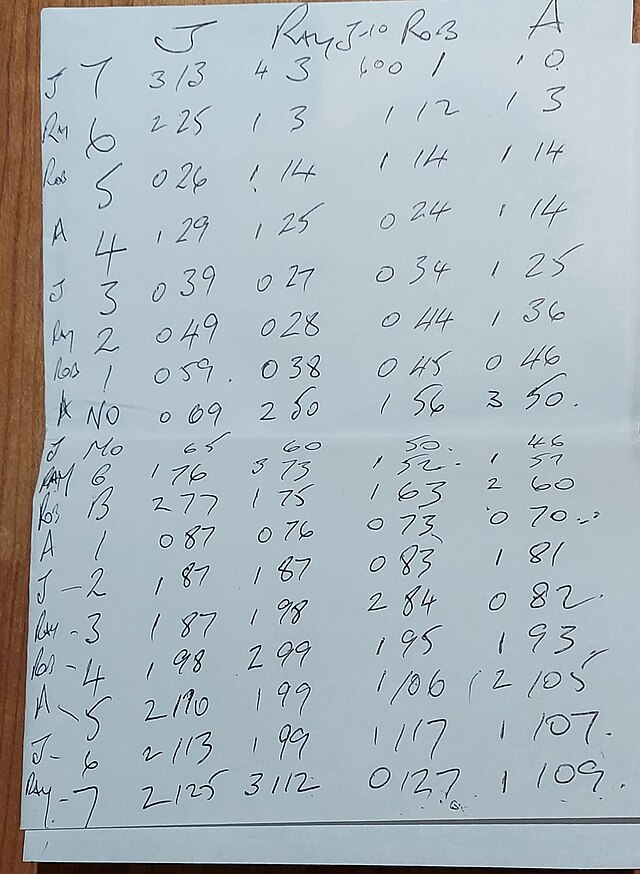 J RAY J-10 ROB A
J 7 3 13 4 3 1 1 0
RAY 6 2 25 1 3 1 12 1 3
ROB 5 0 26 1 14 1 14 1 14
A 4 1 29 1 25 0 24 1 14
J 3 0 39 0 27 0 34 1 25
RAY 2 0 49 0 28 0 44 1 36
ROB 1 0 59. 0 38 0 45 0 46
A NO 0 69 2 50 1 56 3 50.
J Mo 65 60 50. 46
RAY B 1 76 3 73 1 52. 1 57
ROB B 2 77 1 75 1 63 2 60
A 1 0 87 0 76 0 73 0 70
J - 2 1 87 1 87 0 83 1 81
RAY - 3 1 87 1 98 2 84 0 82.
ROB - 4 1 98 2 99 1 95 1 93
A 5 2 110 1 99 1 106 2 105
J - 6 2 113 1 99 1 117 1 107.
RAY - 7 2 125 3 112 0 127 1 109.